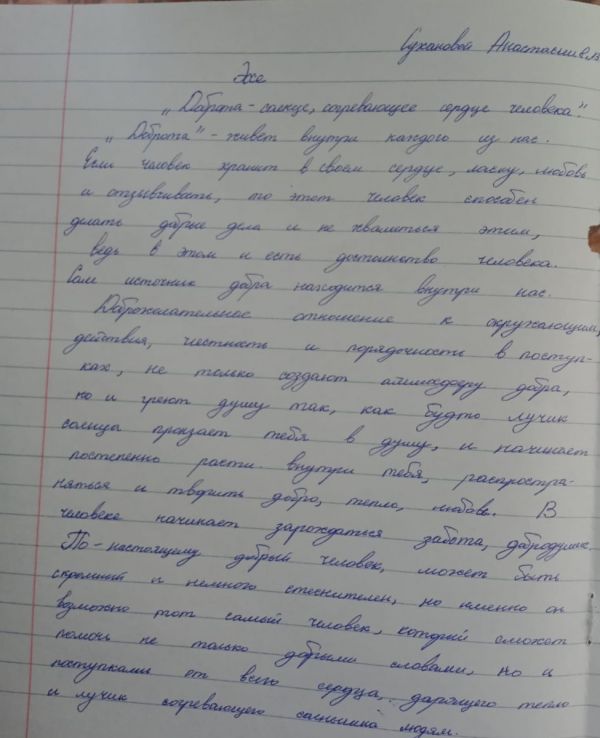 Сухановой Анастасии 8 "В"
Эссе
"Доброта - солнце, согревающее сердце человека."
"Доброта" - живёт внутри каждого из нас.
Если человек хранит в своём сердце, ласку, любовь
и отзывчивать, то этот человек способен
делать добрые дела и не хвалиться этим,
ведь в этом и есть достоинство человека.
Сам источник добра находится внутри нас.
Доброжелательное отношение к окружающим,
действия, честность и порядочность в поступ-
ках, не только создают атмосферу добра,
но и греют душу так, как будто лучик
солнца пронзает тебя в душу, и начинает
постепенно расти внутри тебя, распростра-
няться и творить добро, тепло, любовь. В
человеке начинает зарождаться забота, добродушие.
По-настоящему добрый человек, может быть
скромный и немного стеснителен, но именно он
возможно тот самый человек, который сможет
помочь не только добрыми словами, но и
поступками от всего сердца, дарящего тепло
и лучик согревающего солнышка людям.